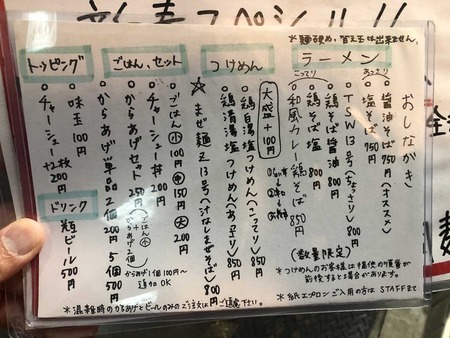 おしながき
*麺硬め、替え玉は出来ません。
ラーメン
あっさり
醤油そば 750円 (オススメ)
塩そば 750円
こってり
TSW13号(ちょざっぷ)
鶏そば醤油 800円
鶏そば塩 800円
和風カレーそば 850円
(数量限定)
大盛 +100円
つけめん
鶏白湯塩つけめん(こってり) 850円
鶏清湯塩つけめん(あっさり) 850円
☆まぜ麺Z13号(汁なしまぜそば) 800円
ごはん、セット
ごはん 小100 中150 大200
チャーシュー丼 200円
からあげセット 250円
(ごはん小+からあげ2個)
からあげ単品 2個200円 5個500円
からあげ1個100円〜追加OK
トッピング
味玉 100円
チャーシュー +2枚 200円
ドリンク
瓶ビール 500円
*つけめんのお客様は提供の順番が前後する場合があります。
*紙エプロンご入用の方はSTAFFまで
*混雑時のからあげとビールのみのご注文はご遠慮下さい。